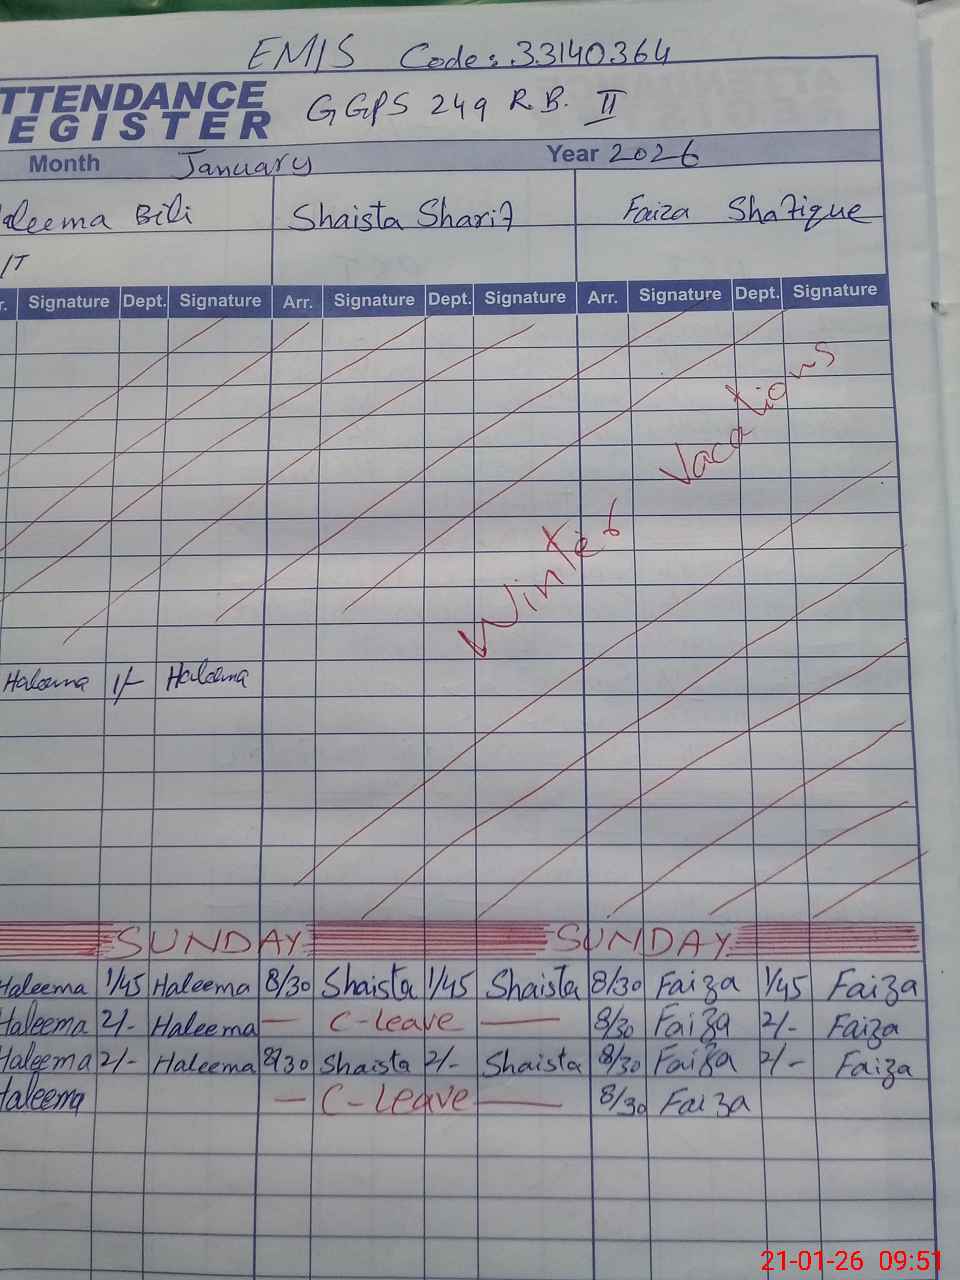 EMIS Code: 33140364
TTENDANCE
EGISTER
GGPS 249 R.B. II
Month January Year 2026
aleema Bibi Shaista Sharif Faiza Shafique
/T
r. Signature Dept. Signature Arr. Signature Dept. Signature Arr. Signature Dept. Signature
Winter Vacations
Haleema 1/- Haleema
SUNDAY SUNDAY
Haleema 1/45 Haleema 8/30 Shaista 1/45 Shaista 8/30 Faiza 1/45 Faiza
Haleema 2/- Haleema — C-leave — 8/30 Faiza 2/- Faiza
Haleema 2/- Haleema 8/30 Shaista 2/- Shaista 8/30 Faiza 2/- Faiza
Haleema — C-Leave — 8/30 Faiza
21-01-26 09:51